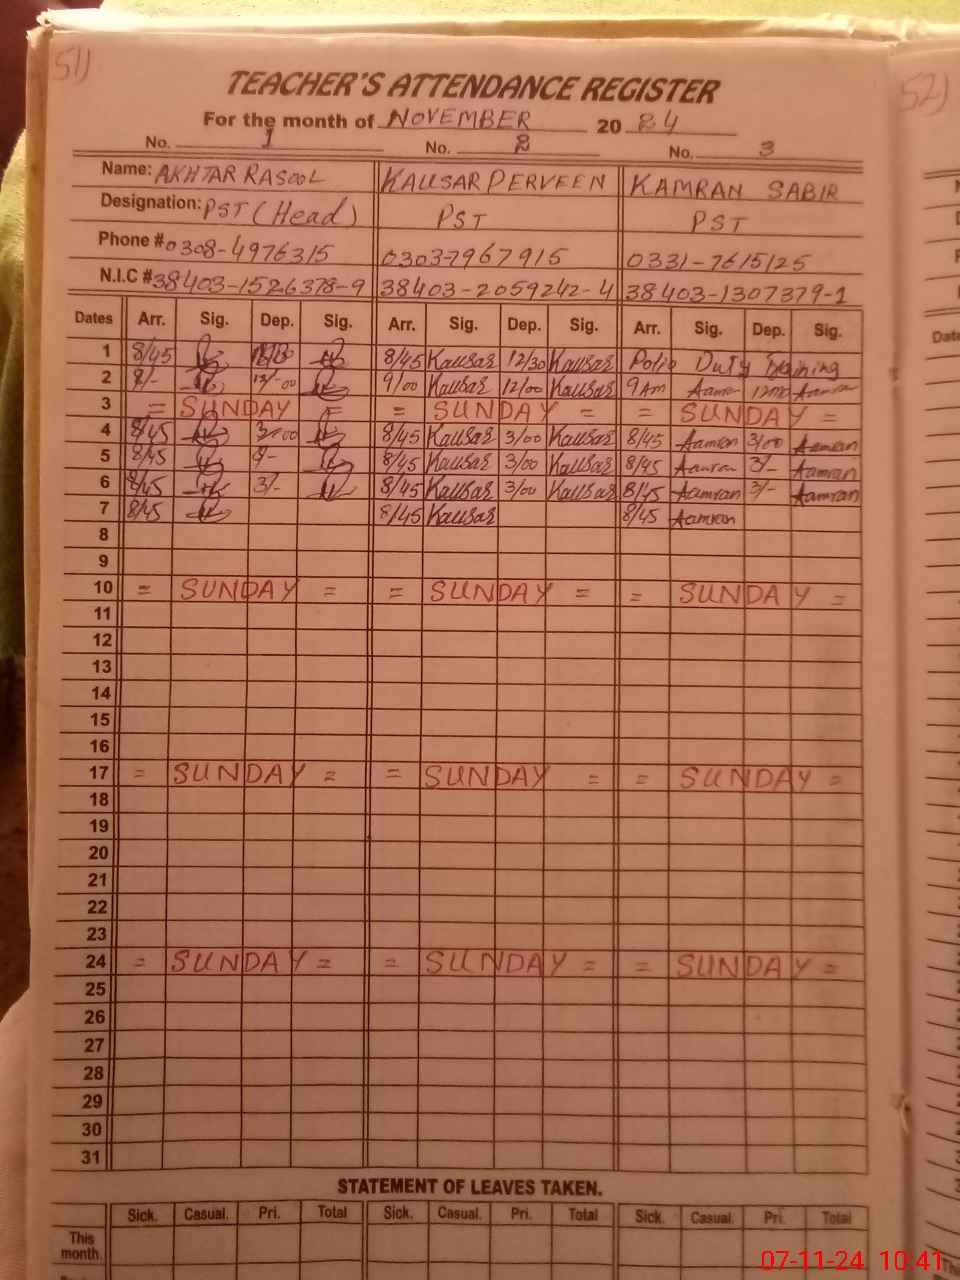 51)
52)
TEACHER'S ATTENDANCE REGISTER
For the month of NOVEMBER 20 24
No. 1 No. 2 No. 3
Name: AKHTAR RASOOL KAUSAR PERVEEN KAMRAN SABIR
Designation: PST (Head) PST PST
Phone # 0308-4976315 0303-7967915 0331-7615125
N.I.C # 38403-1526378-9 38403-2059242-4 38403-1307379-1
Dates Arr. Sig. Dep. Sig. Arr. Sig. Dep. Sig. Arr. Sig. Dep. Sig.
1 8/45 8/45 Kausar 12/30 Kausar Polio Duty Training
2 9/00 Kausar 12/00 Kausar 9 AM Aamran Aamran
3 = SUNDAY = = SUNDAY = = SUNDAY =
4 8/45 8/45 Kausar 3/00 Kausar 8/45 Aamran 3/00 Aamran
5 8/45 8/45 Kausar 3/00 Kausar 8/45 Aamran 3/- Aamran
6 8/45 3/- 8/45 Kausar 3/00 Kausar 8/45 Aamran 3/- Aamran
7 8/45 8/45 Kausar 8/45 Aamran
8
9
10 = SUNDAY = = SUNDAY = = SUNDAY =
11
12
13
14
15
16
17 = SUNDAY = = SUNDAY = = SUNDAY =
18
19
20
21
22
23
24 = SUNDAY = = SUNDAY = = SUNDAY =
25
26
27
28
29
30
31
STATEMENT OF LEAVES TAKEN.
Sick. Casual. Pri. Total Sick. Casual. Pri. Total Sick. Casual. Pri. Total
This month.
07-11-24 10:41